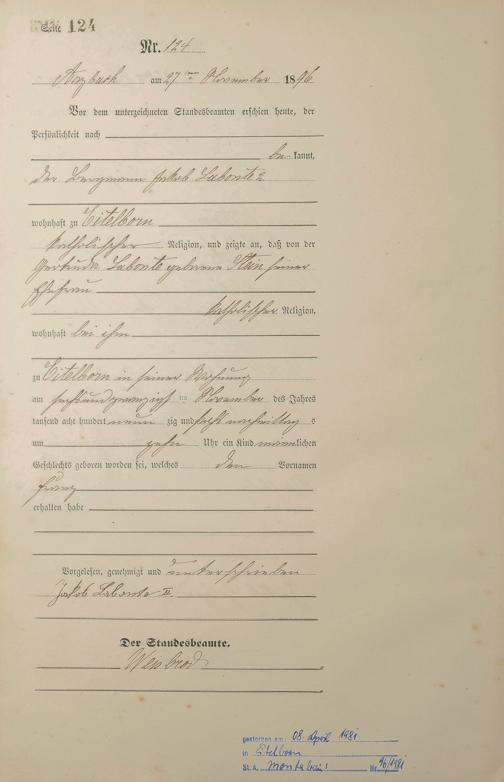 Seite 124
Nr. 124
Arzbach am 27ten November 1896
Vor dem unterzeichneten Standesbeamten erschien heute, der
Persönlichkeit nach
be kannt,
der Bergmann Jakob Labonte 2
wohnhaft zu Eitelborn
katholischer Religion, und zeigte an, daß von der
Gertruda Labonte geborene Stein seiner
Ehefrau
katholischer Religion,
wohnhaft bei ihm
zu Eitelborn in seiner Wohnung
am sechsundzwanzigsten November des Jahres
tausend acht hundert neun zig und sechs nachmittags
um zehn Uhr ein Kind männlichen
Geschlechts geboren worden sei, welches den Vornamen
Franz
erhalten habe
Vorgelesen, genehmigt und unterschrieben
Jakob Labonte II.
Der Standesbeamte.
gestorben am 08. April 1981
in Eitelborn
St.A. Montabaur Nr. 96/1981